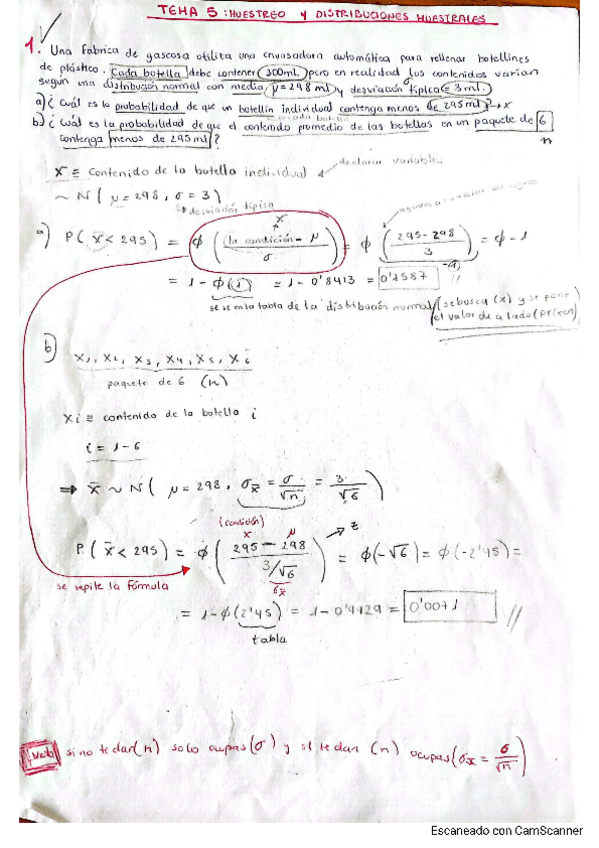 TEMA 5: MUESTREO Y DISTRIBUCIONES MUESTRALES
1. Una fabrica de gaseosa utiliza una envasadora automática para rellenar botellines
de plástico. Cada botella debe contener 300ml pero en realidad los contenidos varian
según una distribución normal con media μ=298 ml y desviación típica σ=3ml.
a) ¿Cuál es la probabilidad de que un botellin individual contenga menos de 295ml? → x
b) ¿Cuál es la probabilidad de que el contenido promedio de las botellas en un paquete de 6
n
contenga menos de 295ml?
X ≡ contenido de la botella individual declarar variables
~ N( μ=298, σ=3)
desviación típica
x
a) P(X<295) = φ (la condición - μ / σ) = φ (295-298 / 3) = φ -1
= 1-φ(1) = 1-0'8413 = 0'1587
se ve en la tabla de la distribución normal/(se busca (x) y se pone
el valor de a lado
b) X1, X2, X3, X4, X5, Xi
paquete de 6 (n)
Xi ≡ contenido de la botella i
i = 1-6
⇒ x̄ ~ N( μ=298, σx̄ = σ/√n = 3/√6 )
(condición)
x μ → z
P(x̄<295) = φ (295-298 / 3/√6) = φ(-√6) = φ(-2'45) =
σx̄
se repite la fórmula
= 1-φ(2'45) = 1-0'9929 = 0'0071 //
tabla
si no te dan(n) solo ocupas(σ) y si te dan (n) ocupas(σx = σ/√n)
Escaneado con CamScanner